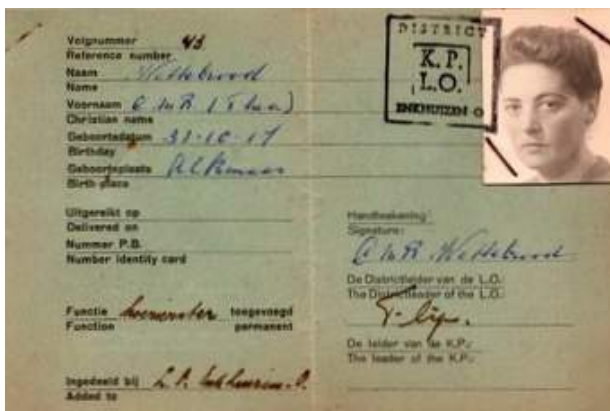 Volgnummer 43
Reference number
Naam Wittebrood
Name
Voornaam C M R (
Christian name
Geboortedatum 31-10-17
Birthday
Geboorteplaats Alkmaar
Birth place
Uitgereikt op
Delivered on
Nummer P.B.
Number identity card
Functie koerierster toegevoegd
Function permanent
Ingedeeld bij
Added to
DISTRICT
K.P.
L.O.
ENKHUIZEN O
Handtekening:
Signature:
C M R Wittebrood
De Districtleider van de L.O.:
The Districtleader of the L.O.:
De leider van de K.P.:
The leader of the K.P.: